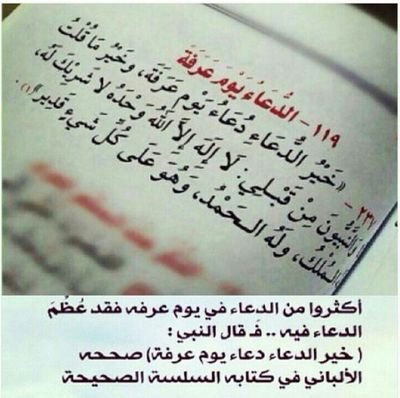 ١١٩ - الدُّعَاءُ يَوْمَ عَرَفَةَ
٢٣٧ - «خَيْرُ الدُّعَاءِ دُعَاءُ يَوْمِ عَرَفَةَ، وَخَيْرُ مَا قُلْتُ
وَالنَّبِيُّونَ مِنْ قَبْلِي: لَا إِلَهَ إِلاَّ اللَّهُ وَحْدَهُ لَا شَرِيكَ لَهُ،
المُلْكُ، وَلَهُ الْحَمْدُ، وَهُوَ عَلَى كُلِّ شَيْءٍ قَدِيرٌ»(١).
أكثروا من الدعاء في يوم عرفه فقد عُظِّمَ
الدعاء فيه .. فـ قال النبي :
( خير الدعاء دعاء يوم عرفة) صححه
الألباني في كتابه السلسة الصحيحة